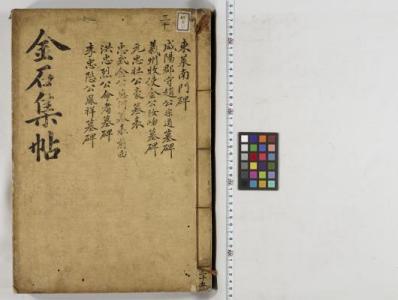 東萊南門碑
咸陽郡守趙公宗道墓碑
義州牧使金公汝岉墓碑
元忠壯公豪墓表
忠武金公應河墓表前面
洪忠烈公命耉墓碑
李忠愍公鳳祥墓碑
金石集帖